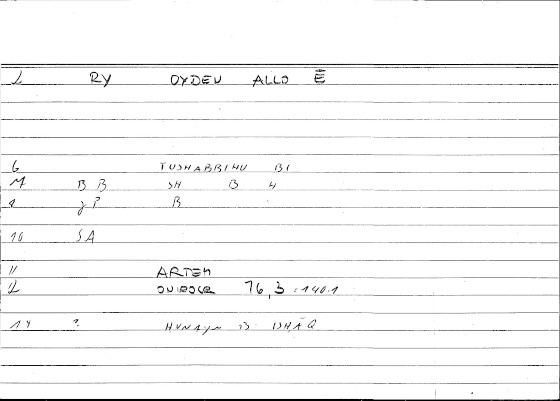 RY OXDEU ALLO Ē
6 TUSHABBIHU BI
M B B SH B H
1 γP B
10 SA
11 ARTEM
12 76,3 = 140.1
14 ? HUNAYN B ISHĀQ